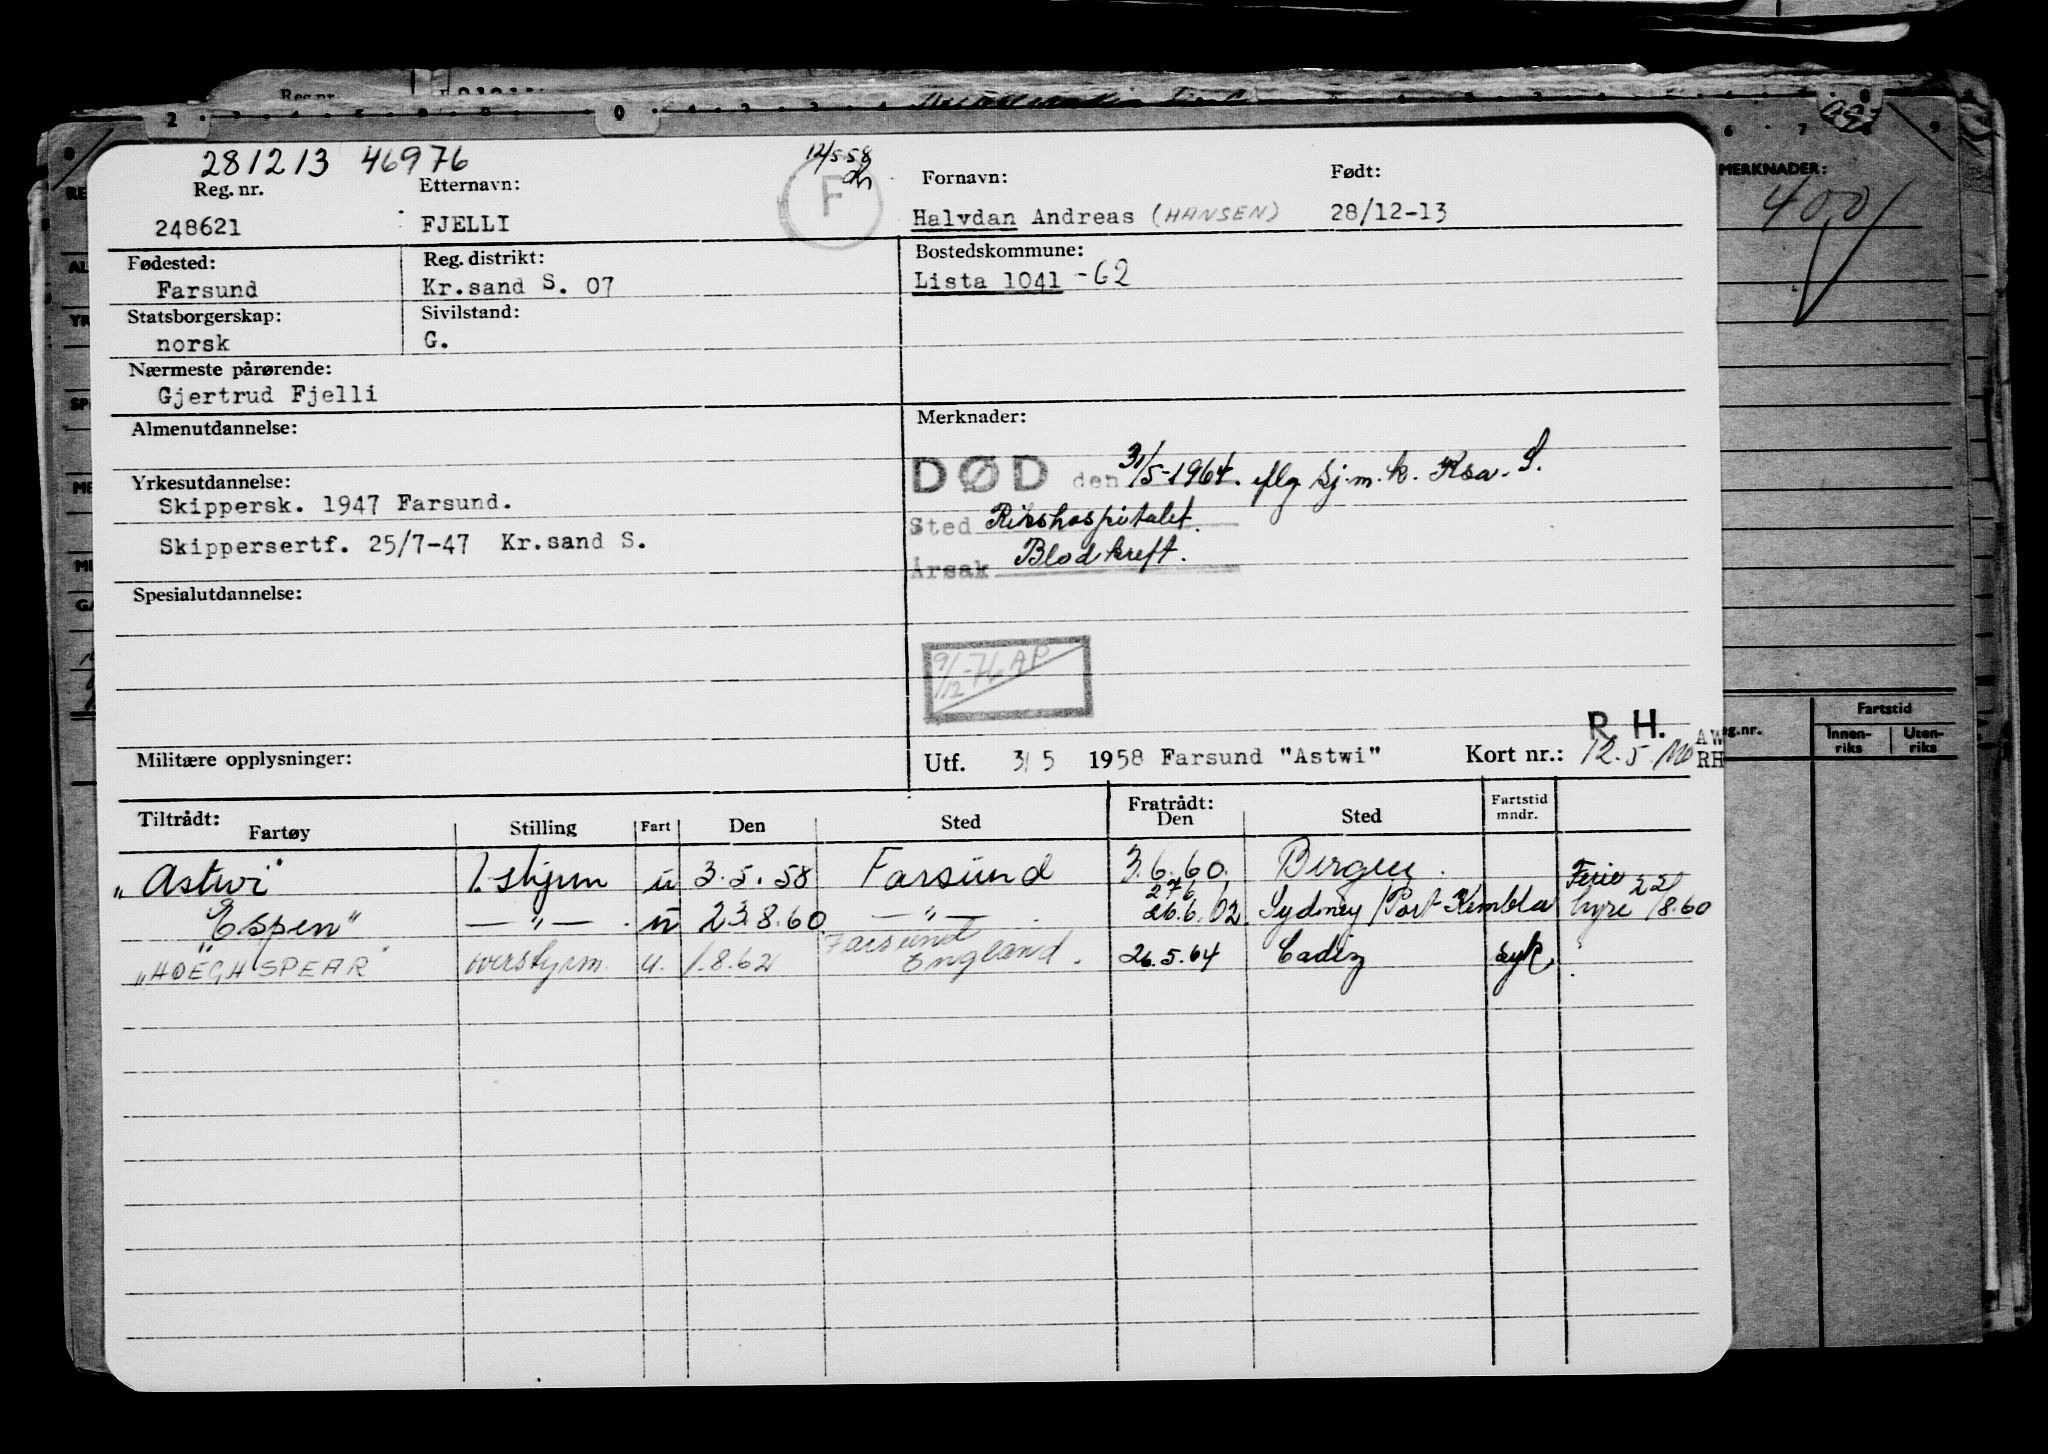 281213 46976 12/5-58
Reg. nr. Etternavn: F Fornavn: Født:
248621 FJELLI Halvdan Andreas (HANSEN) 28/12-13
Fødested: Reg. distrikt: Bostedskommune:
Farsund Kr.sand S. 07 Lista 1041 -62
Statsborgerskap: Sivilstand:
norsk G.
Nærmeste pårørende:
Gjertrud Fjelli
Almenutdannelse: Merknader:
DØD den 31/5-1964. iflg sj.m.k. Ksa. S.
Yrkesutdannelse:
Skippersk. 1947 Farsund. Sted Rikshospitalet.
Skippersertf. 25/7-47 Kr.sand S. Årsak Blodkreft.
Spesialutdannelse:
9/12-76 AP
R. H.
Militære opplysninger: Utf. 3/5 1958 Farsund "Astwi" Kort nr.: 12.5. AW
RH
Tiltrådt: Fratrådt:
Fartøy Stilling Fart Den Sted Den Sted Fartstid mndr.
"Astwi" 1. styrm u 3.5.58 Farsund 3.6.60. Bergen. Ferie
"Espen" —"— u 23.8.60 —"— 27/6 26.6.62 Sydney/Port Kembla hyre 22/8.60
Farsund
"HOEGH SPEAR" overstyrm. u. 1.8.62 England. 26.5.64 Cadiz syk.
MERKNADER:
400/
Fartstid
Innen-riks Uten-riks